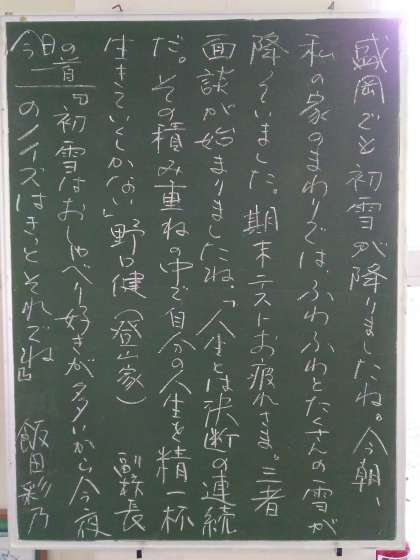 盛岡でも初雪が降りましたね。今朝、
私の家のまわりでは、ふわふわとたくさんの雪が
降っていました。期末テストお疲れさま。三者
面談が始まりましたね。「人生とは決断の連続
だ。その積み重ねの中で自分の人生を精一杯
生きていくしかない」野口健（登山家） 副校長
今日の一首『初雪はおしゃべり好きが多いから今夜
のノイズはきっとそれでね』 飯田彩乃